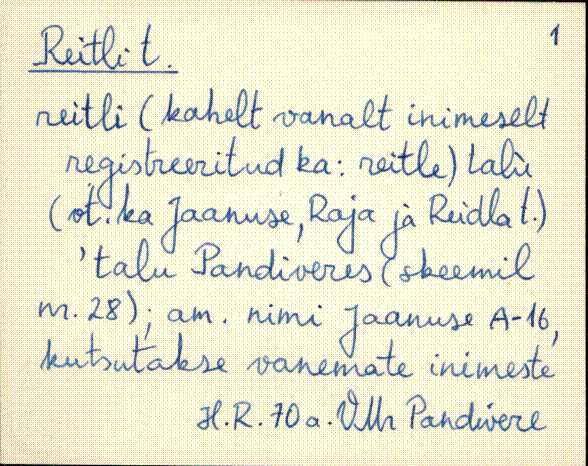 1
Reitli t.
reitli (kahelt vanalt inimeselt
registreeritud ka: reitle) talù
(öt. ka Jaanuse, Raja jà Reidla t.)
'talu Pandiveres (skeemil
nr. 28); am. nimi Jaanuse A-16,
kutsutakse vanemate inimeste
H.R. 70 a. VMr Pandivere